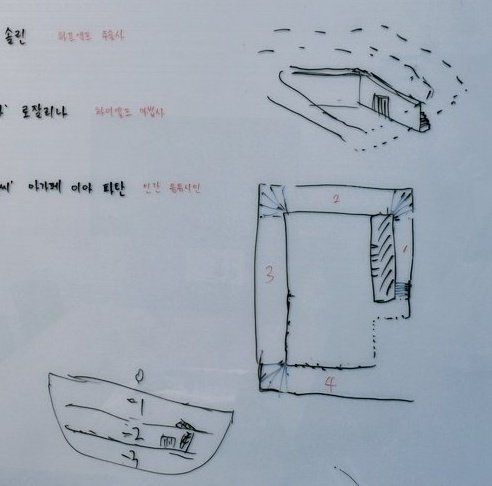 솔린 하프엘프 주술사
로잘리나 하이엘프 마법사
씨' 아가페 이야 파탄 인간 음유시인
2
1
3
4
0
-1
-2
-3